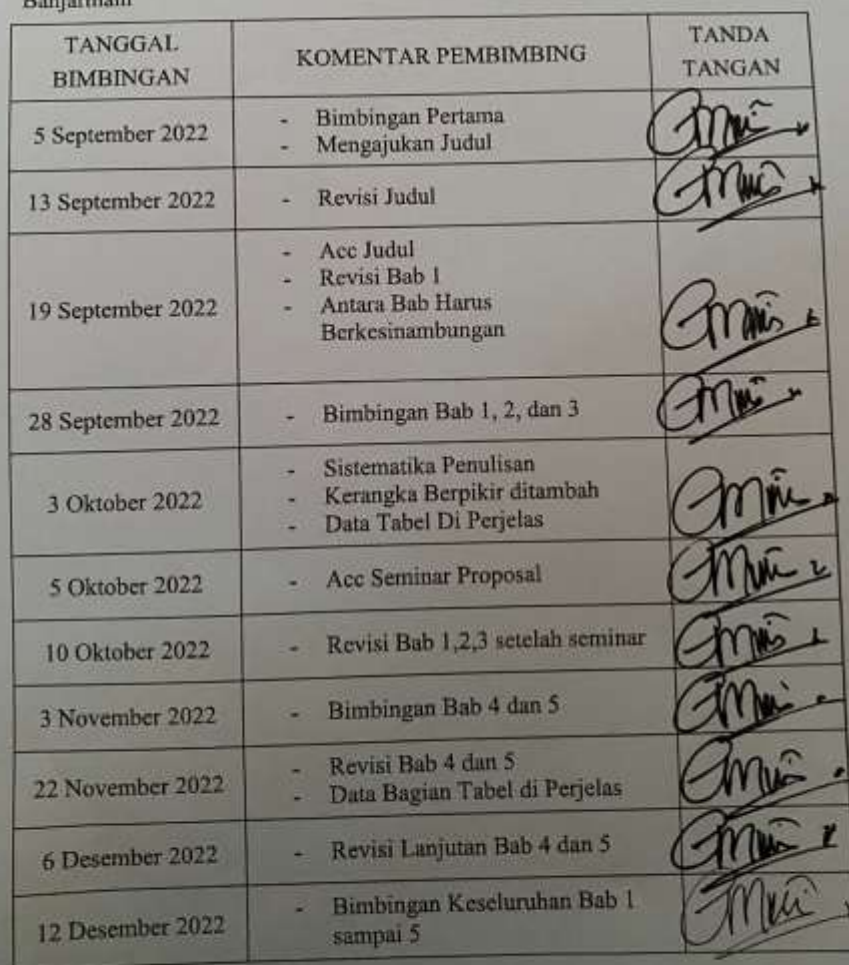 TANGGAL
BIMBINGAN
KOMENTAR PEMBIMBING
TANDA
TANGAN
5 September 2022
- Bimbingan Pertama
- Mengajukan Judul
13 September 2022
- Revisi Judul
19 September 2022
- Acc Judul
- Revisi Bab 1
- Antara Bab Harus
Berkesinambungan
28 September 2022
- Bimbingan Bab 1, 2, dan 3
3 Oktober 2022
- Sistematika Penulisan
- Kerangka Berpikir ditambah
- Data Tabel Di Perjelas
5 Oktober 2022
- Acc Seminar Proposal
10 Oktober 2022
- Revisi Bab 1,2,3 setelah seminar
3 November 2022
- Bimbingan Bab 4 dan 5
22 November 2022
- Revisi Bab 4 dan 5
- Data Bagian Tabel di Perjelas
6 Desember 2022
- Revisi Lanjutan Bab 4 dan 5
12 Desember 2022
- Bimbingan Keseluruhan Bab 1
sampai 5